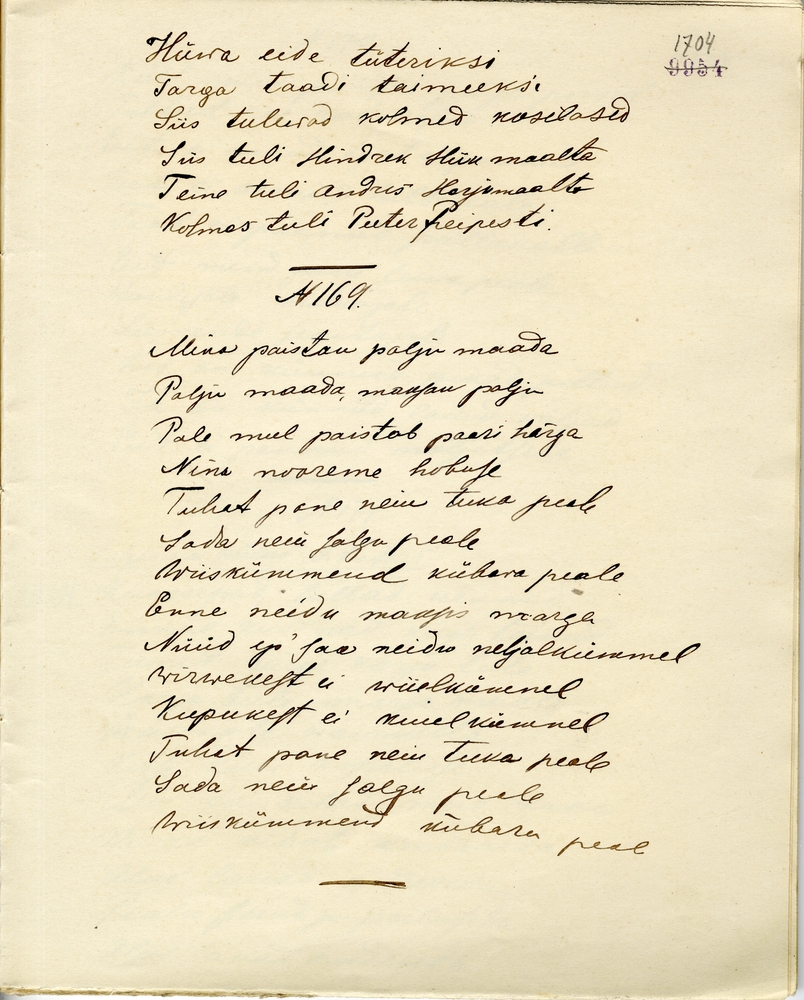 1704
9954
Hüwa eide tüteriksi
Targa taadi taimeeksi
Siis tulewad kolmed kosilased
Siis tuli Hindrek Hiiu maalta
Teine tuli Andres Harjumaalta
Kolmas tuli Peeter Peipesti.
N 169.
Mina paistan palju maada
Palju maada, maksan palju
Pale mul paistab paari härga
Nina nooreme hobuse
Tuhat pane neiu tuka peale
Sada neiu jalgu peale
Wiiskümmend kübara peale
Enne neidu maksis marga
Nüüd ep' saa neidu neljalkümmel
wirwekest ei wiielkümnel
Kupukest ei kuuelkümnel
Tuhat pane neiu tuka peale
Sada neiu jalgu peale
Wiiskümmend kübara peal